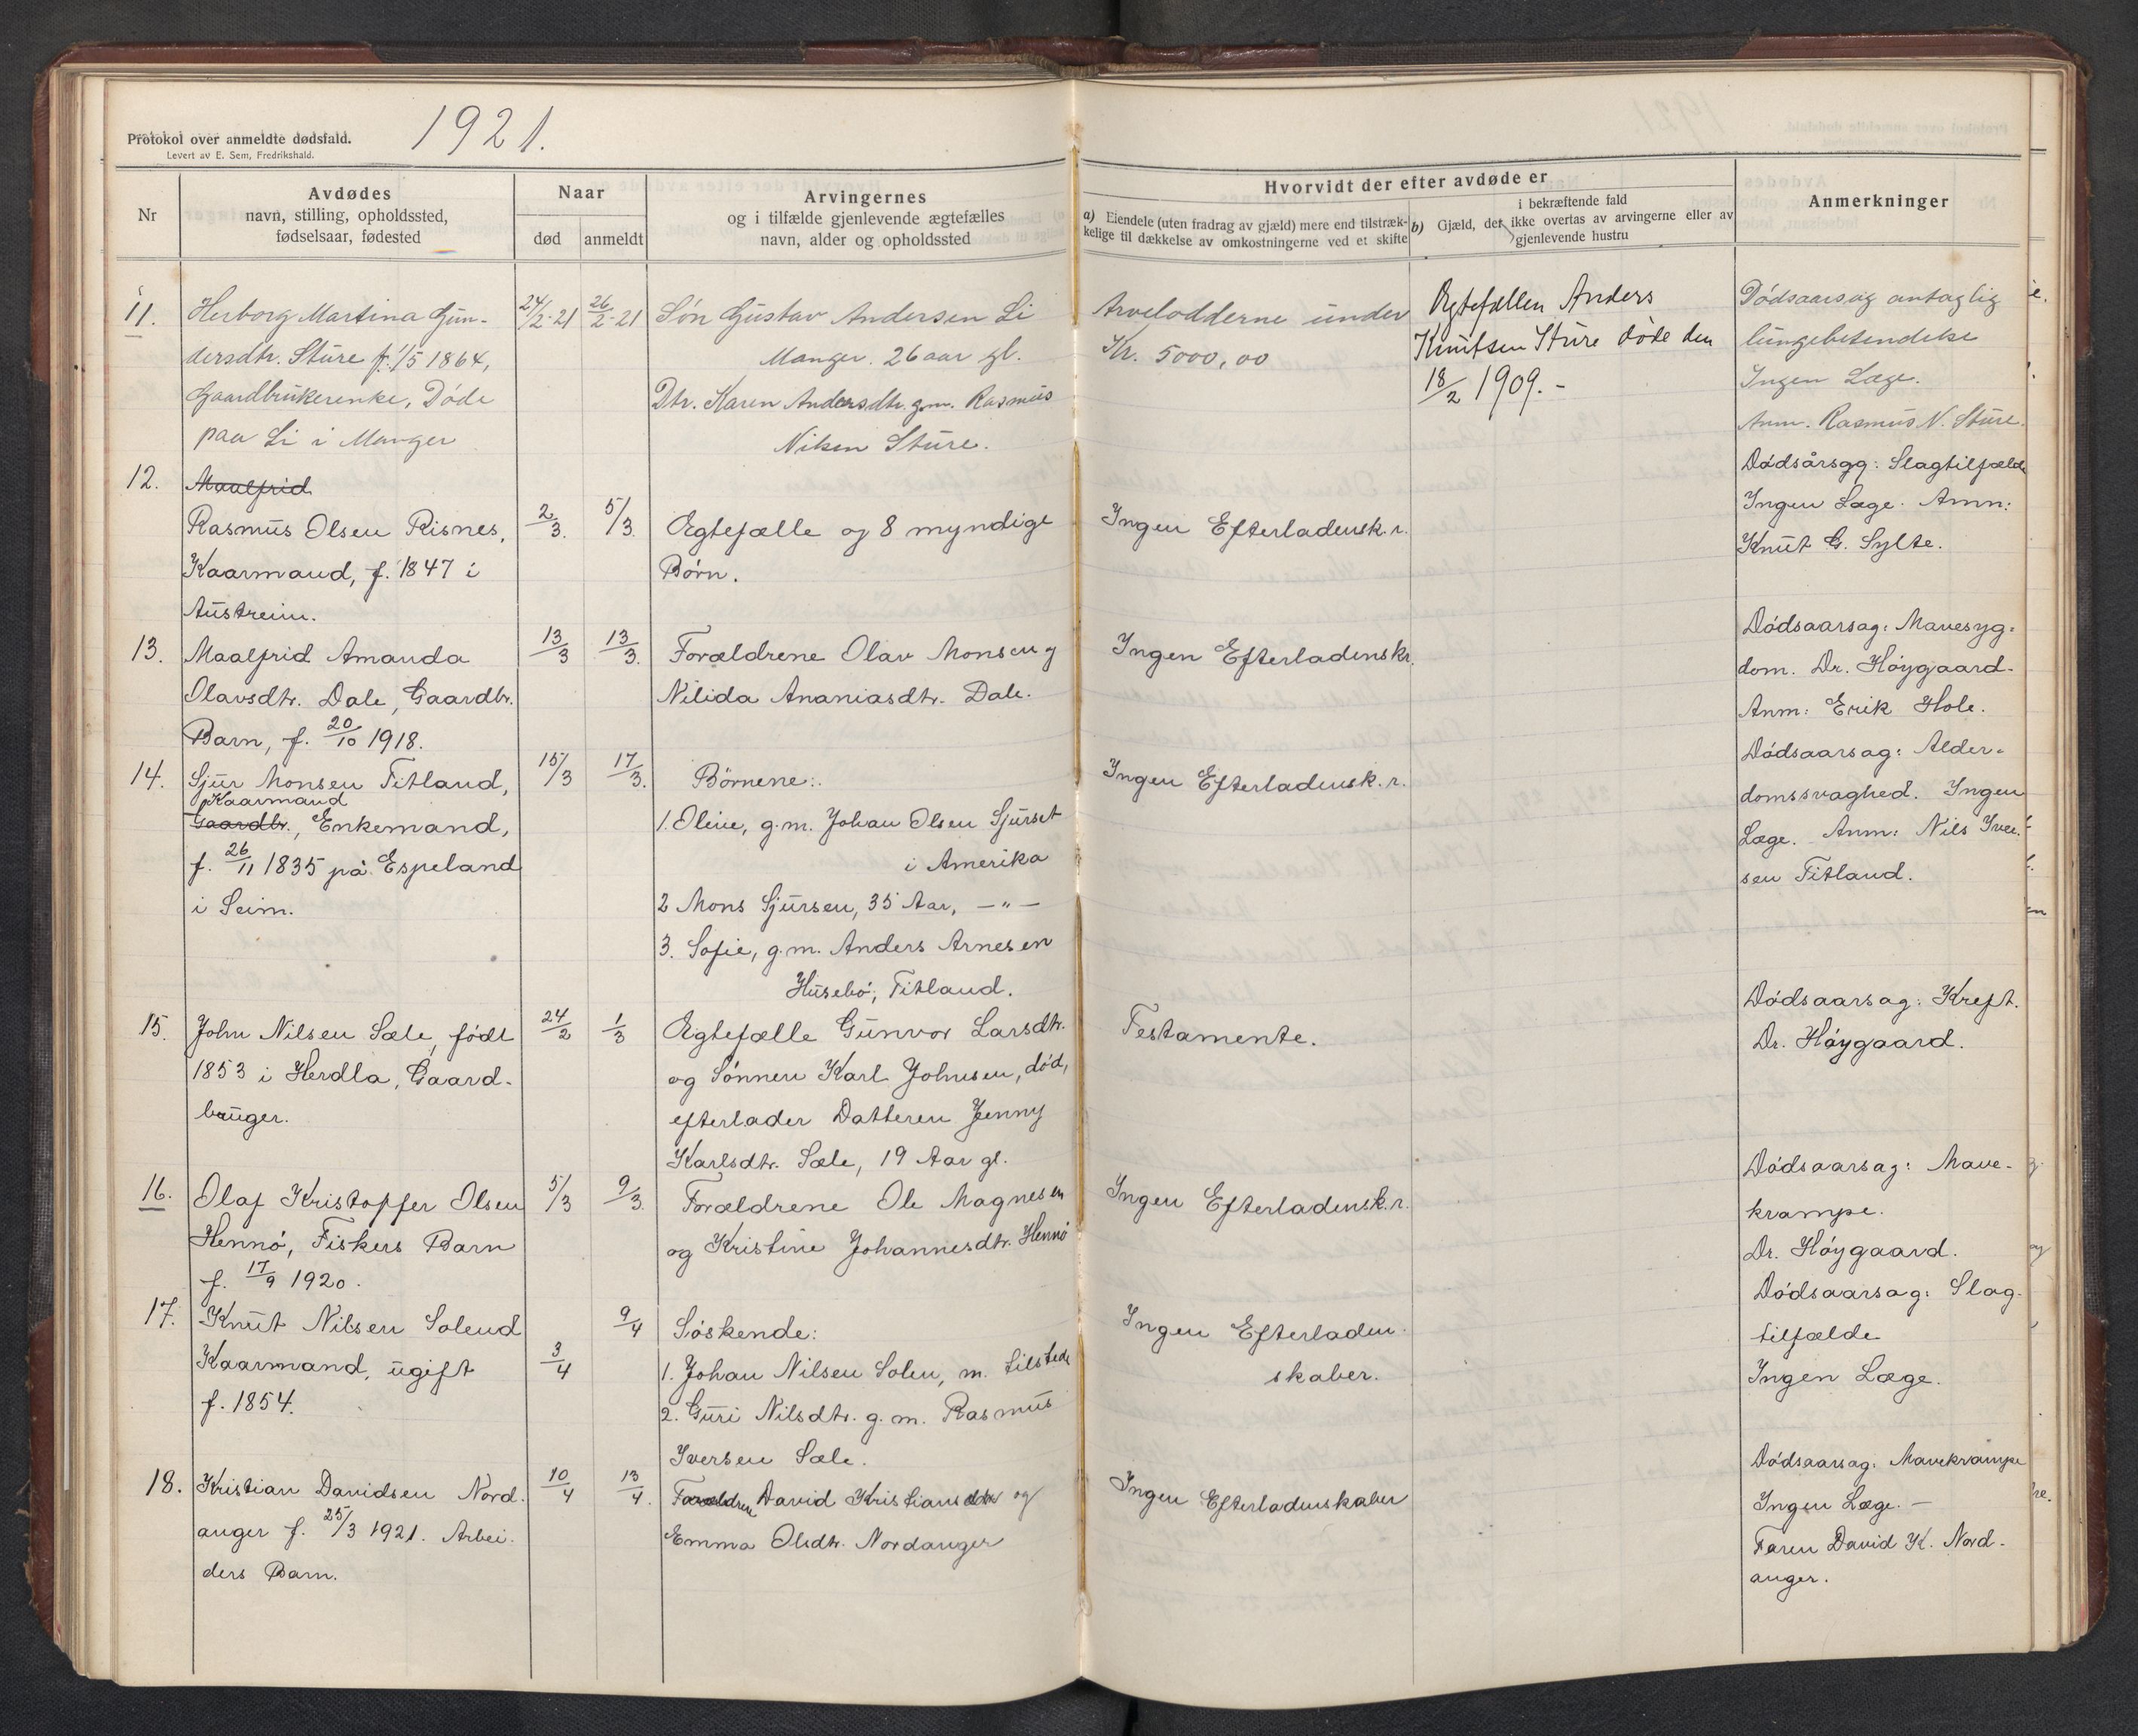 Protokol over anmeldte dødsfald.
Levert av E. Sem, Fredrikshald.
1921.
Nr
Avdødes
navn, stilling, opholdssted,
fødselsaar, fødested
Naar
død
anmeldt
Arvingernes
og i tilfælde gjenlevende ægtefælles
navn, alder og opholdssted
Hvorvidt der efter avdøde er
a) Eiendele (uten fradrag av gjæld) mere end tilstræk-
kelige til dækkelse av omkostningerne ved et skifte
i bekræftende fald
b) Gjæld, det ikke overtas av arvingerne eller av
gjenlevende hustru
Anmerkninger
11.
Herborg Martina Gun-
dersdtr. Sture f. 1/5 1864,
Gaardbrukerenke, Døde
paa Li i Manger
24/2-21
26/2-21
Søn Gustav Andersen Li
Manger. 26 aar gl.
Dtr. Karen Andersdtr. g.m. Rasmus
Nilsen Sture.
Arvelodderne under
Kr. 5000,00
Ægtefællen Anders
Knutsen Sture døde den
18/2 1909.-
Dødsaarsag antaglig
lungebetendelse
Ingen Læge.
Anm. Rasmus N. Sture.
12.
Maalfrid
Rasmus Olsen Risnes,
Kaarmand, f. 1847 i
Austreim.
2/3.
5/3.
Ægtefælle og 8 myndige
Børn.
Ingen Efterladensk.r.
Dødsårsag: Slagtilfælde
Ingen Læge. Anm:
Knut G. Sylte.
13.
Maalfrid Amanda
Olavsdtr. Dale, Gaardbr.
Barn, f. 20/10 1918.
13/3
13/3.
Forældrene Olav Monsen og
Nilida Ananiasdtr. Dale.
Ingen Efterladenskr.
Dødsaarsag: Mavesyg-
dom. Dr. Høygaard.
Anm: Erik Hole.
14.
Sjur Monsen Titland,
Kaarmand
Gaardbr., Enkemand,
f. 26/11 1835 på Espeland
i Seim.
15/3
17/3.
Børnene:
1. Oline, g.m. Johan Olsen Sjurset
i Amerika
2 Mons Sjursen, 35 Aar, -"-
3. Sofie, g.m. Anders Arnesen
Husebø, Titland.
Ingen Efterladensk.r.
Dødsaarsag: Alder-
domssvaghed. Ingen
Læge. Anm: Nils Iver-
sen Titland.
15.
John Nilsen Sæle, født
1853 i Herdla, Gaard-
bruger.
24/2
1/3
Ægtefælle Gunvor Larsdtr.
og Sønnen Karl Johnsen, død,
efterlader Datteren Jenny
Karlsdtr. Sæle, 19 Aar gl.
Testamente.
Dødsaarsag: Kreft.
Dr. Høygaard.
16.
Olaf Kristopfer Olsen
Hennø, Fiskers Barn
f. 17/9 1920.
5/3
9/3.
Forældrene Ole Magnesen
og Kristine Johannesdtr. Hennø
Ingen Efterladensk.r.
Dødsaarsag: Mave-
krampe.
Dr. Høygaard.
17.
Knut Nilsen Solend
Kaarmand, ugift
f. 1854.
3/4
9/4
Søskende:
1. Johan Nilsen Solen, m. tilstede
2. Guri Nilsdtr. g.m. Rasmus
Iversen Sæle.
Ingen Efterladen-
skaber.
Dødsaarsag: Slag-
tilfælde
Ingen Læge.
18.
Kristian Davidsen Nord-
anger f. 25/3 1921. Arbei-
ders Barn.
10/4
13/4.
Forældren David Kristians og
Emma Olsdtr. Nordanger
Ingen Efterladenskaber
Dødsaarsag: Mavekrampe
Ingen Læge. -
Faren David K. Nord-
anger.